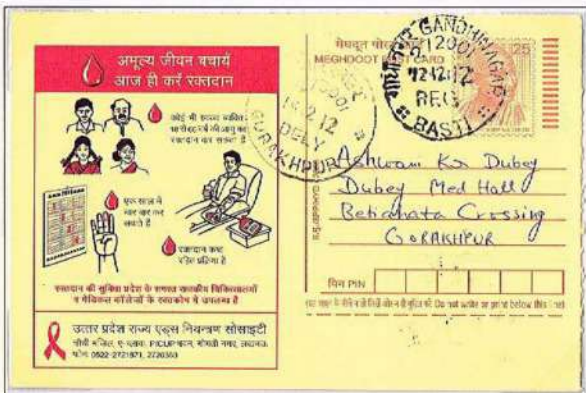 अमूल्य जीवन बचायें
आज ही करें रक्तदान
कोई भी स्वस्थ व्यक्ति
रक्तदान कर सकता है
एक साल में
चार बार कर
सकते हैं
रक्तदान कष्ट
रहित प्रक्रिया है
रक्तदान की सुविधा प्रदेश के समस्त राजकीय चिकित्सालयों
व मेडिकल कॉलेजों के रक्तकोष में उपलब्ध है
उत्तर प्रदेश राज्य एड्स नियन्त्रण सोसाइटी
चौथी मंजिल, ए-ब्लाक, PICUP भवन, गोमती नगर, लखनऊ
फोन: 0522-2721871
मेघदूत
MEGHDOOT CARD
25
GANDHINAGAR
REG
BASTI
DELY
GORAKHPUR
Ashwani Kr Dubey
Dubey Med Hall
Betiahata Crossing
GORAKHPUR
पिन PIN
Do not write or print below this line